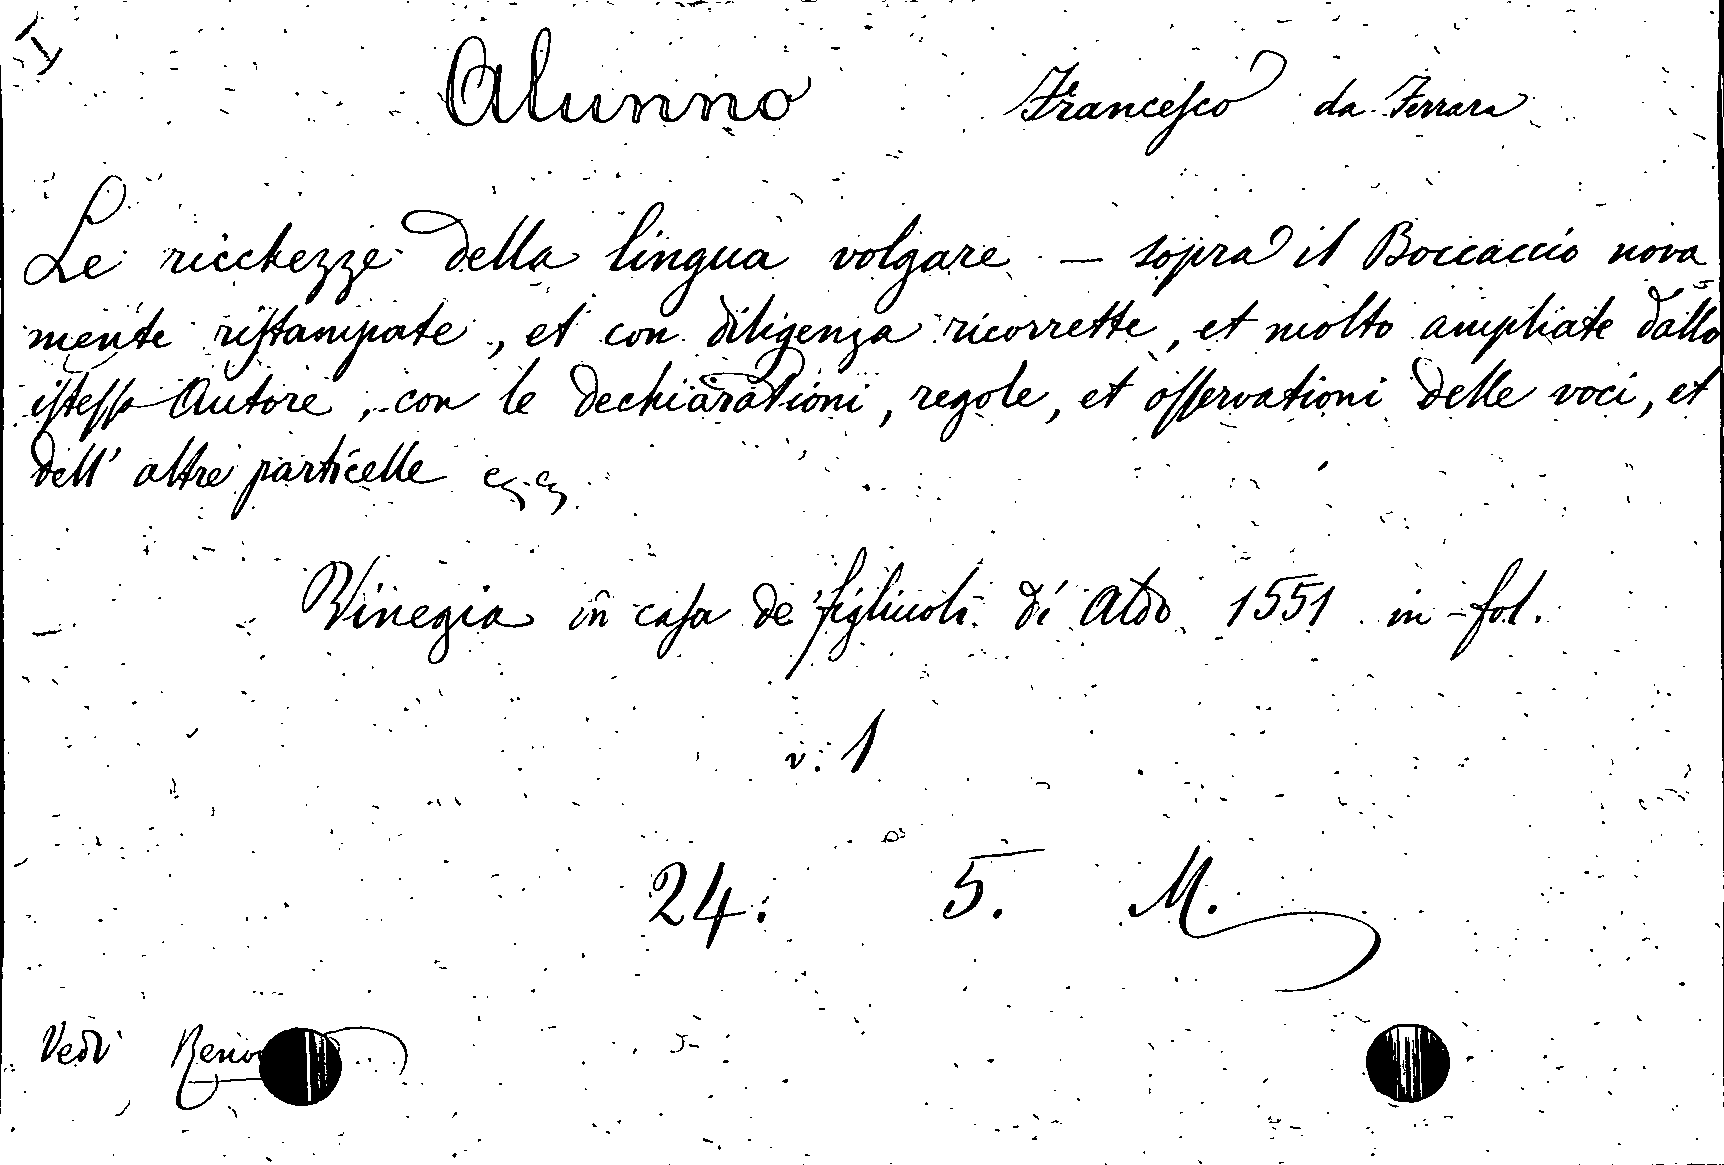 I
Alunno Francesco da Ferrara
Le ricchezze della lingua volgare — sopra il Boccaccio nova
mente ristampate, et con diligenza ricorrette, et molto ampliate dallo
istesso Autore, con le dechiarationi, regole, et osservationi delle voci, et
dell' altre particelle
Vinegia in casa de' figliuoli di Aldo 1551 in-fol.
v. 1
24. 5. M.
Vedi